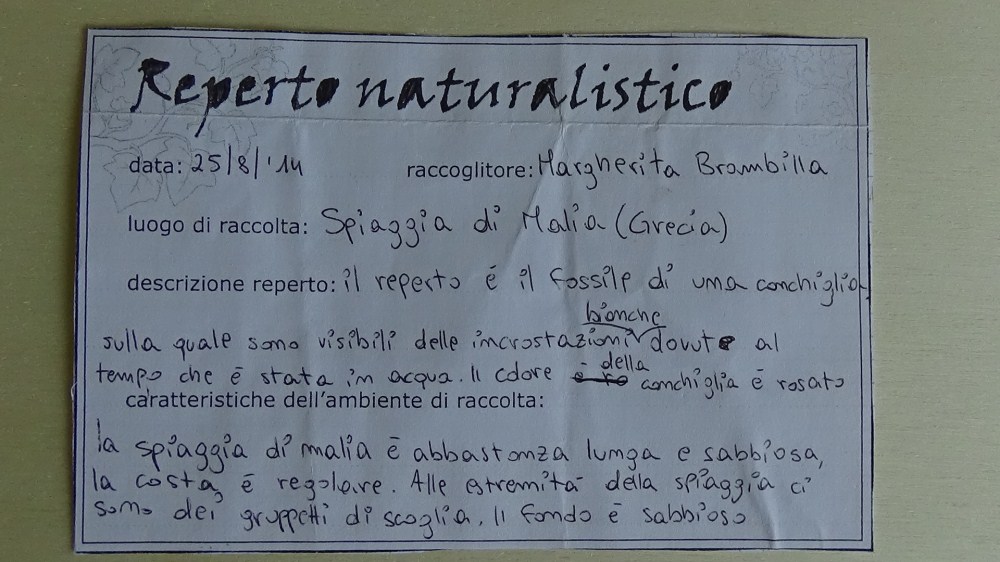 Reperto naturalistico
data: 25/8/'14 raccoglitore: Margherita Brambilla
luogo di raccolta: Spiaggia di Malia (Grecia)
descrizione reperto: il reperto é il fossile di una conchiglia
bianche
sulla quale sono visibili delle incrostazioni dovute al
della
tempo che è stata in acqua. Il colore conchiglia é rosato
caratteristiche dell'ambiente di raccolta:
la spiaggia di malia è abbastanza lunga e sabbiosa,
la costa é regolare. Alle estremità della spiaggia ci
sono dei gruppetti di scoglia. Il fondo é sabbioso